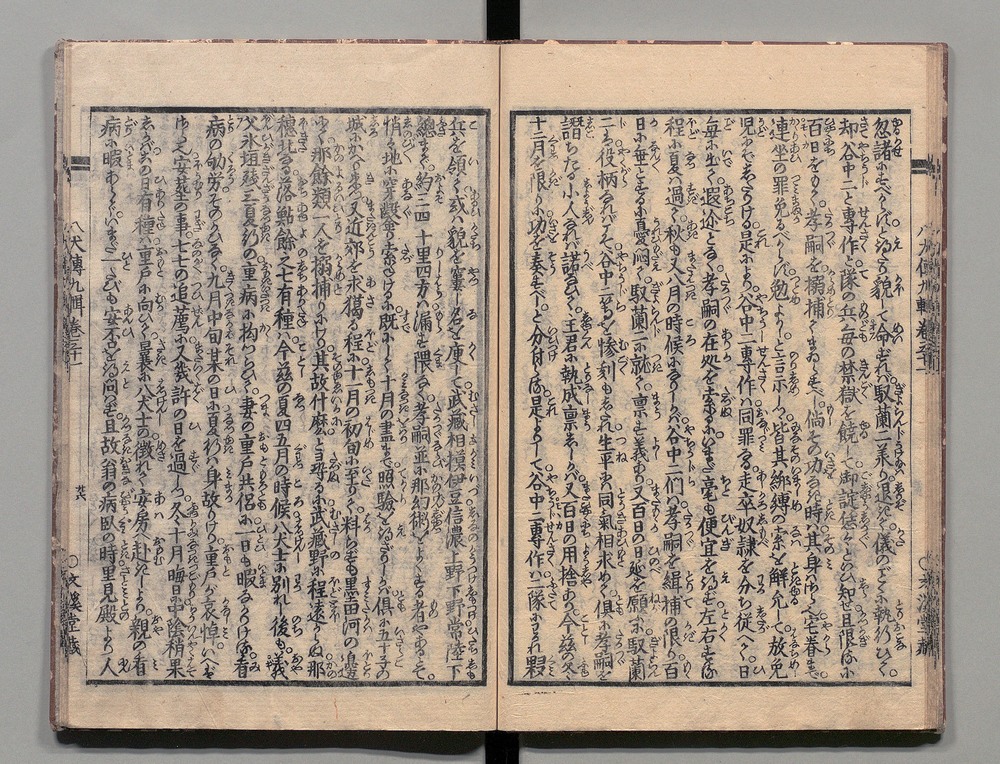 忽諸にすべからずと、いと貌て命ずれバ、馭蘭二美び退きて、儀のごとく執行ひつ、
却谷中二と専作と隊の兵毎の禁獄を饒して、御諚恁々とのひ知せ、且限るに
百日をもて、孝嗣を搦捕りまゐらすべし。倘その功なき時ハ、其身ハさら也、宅眷も
連坐の罪免るべからず、勉めよ、と言示して、皆其綁縛の索を觧允して、放免
児ンでたちける。是より谷中二専作ハ、同罪なる走卒奴隷を分ち従へて、日
毎に出て遐迩となく、孝嗣の在処を索るに、いまだ毫も便宜を得ず、左右する
程に夏ハ過て、秋も又八月の時候になりしかバ、谷中二們ハ孝嗣を緝捕の限の、百
日に垂とするに憂悶て、馭蘭二に就て、禀すに義あり。又百日の日延を願ふに、馭蘭
二ハ役柄なれバこそ、谷中二にハ惨刻もすれ、生平ハ同氣相求めて、倶に孝嗣を
譖ちたる小人なれバ、諾ひて、王君に執成禀ししかバ、又百日の用捨あり。今茲の冬
十二月を限りに、功を奏すべし、と分付らる。是よりして谷中二専作ハ、一隊にわかれ、夥
兵を領て、或ハ貌を窶し、名を庾して、武藏相摸伊豆信濃、上野下野常陸下
總まで、約二四十里四方ハ、漏す隈なく、孝嗣並に那幻術よくする者やある、そ
悄々地に穿鑿て索るに、既にして十月の盡まで、照驗を得ざりしかバ、倶に五十子の
城にかへりて、又近郊を求獦る程に、十一月の初旬に至りて、料らずも墨田河の邊
にて、那餘類一人を搦捕りにけり。其故什麽と尋るに、武藏野に程遠からぬ、那
穗北なる落鮎餘之七有種ハ、今茲の夏四五月の時候、八犬士に別れし後も、義
父氷垣残三夏行の重病に拘らひて、妻の重戸共侶に、一日も暇なかりける、看
病の劬労そのかひなく、九月中旬某の日に、夏行ハ身故りけり。重戸が哀悼いへばさ
ら也、安葬の事、七七の追薦に、又幾許の日を過しつ、冬十月晦日に、中陰稍果
しかバ、その日有種ハ、重戸に向ひて、曩に八犬士の徴れて、安房へ赴きしより、親の看
病に暇なくて、いまだ一たびも安否を得問はず、且故翁の病臥の時、里見殿より人
八犬傳九輯卷三十一
廿八
○文溪堂藏